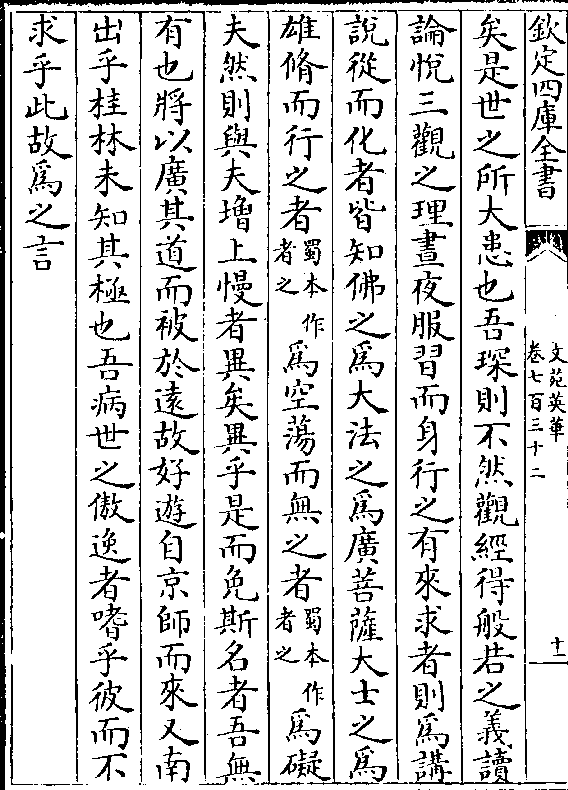 欽定四庫全書
文苑英華
卷七百三十二
十一
矣是世之所大患也吾琛則不然觀經得般若之義讀
論悅三觀之理晝夜服習而身行之有來求者則為講
說從而化者皆知佛之為大法之為廣菩薩大士之為
雄脩而行之者蜀本作者之為空蕩而無之者蜀本作者之為礙
夫然則與夫增上慢者異矣異乎是而免斯名者吾無
有也將以廣其道而被於遠故好遊自京師而來又南
出乎桂林未知其極也吾病世之傲逸者嗜乎彼而不
求乎此故為之言